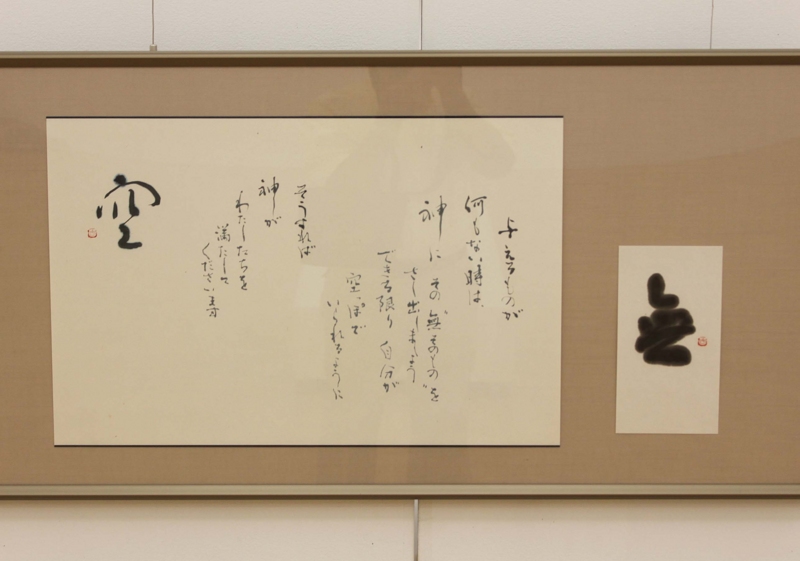 与えるものが
何もない時は、
神に その“無そのもの”を
さし出しましょう
できる限り 自分が
空っぽで
いられるように
そうすれば
神が
わたしたちを
満たして
くださいます
空
無